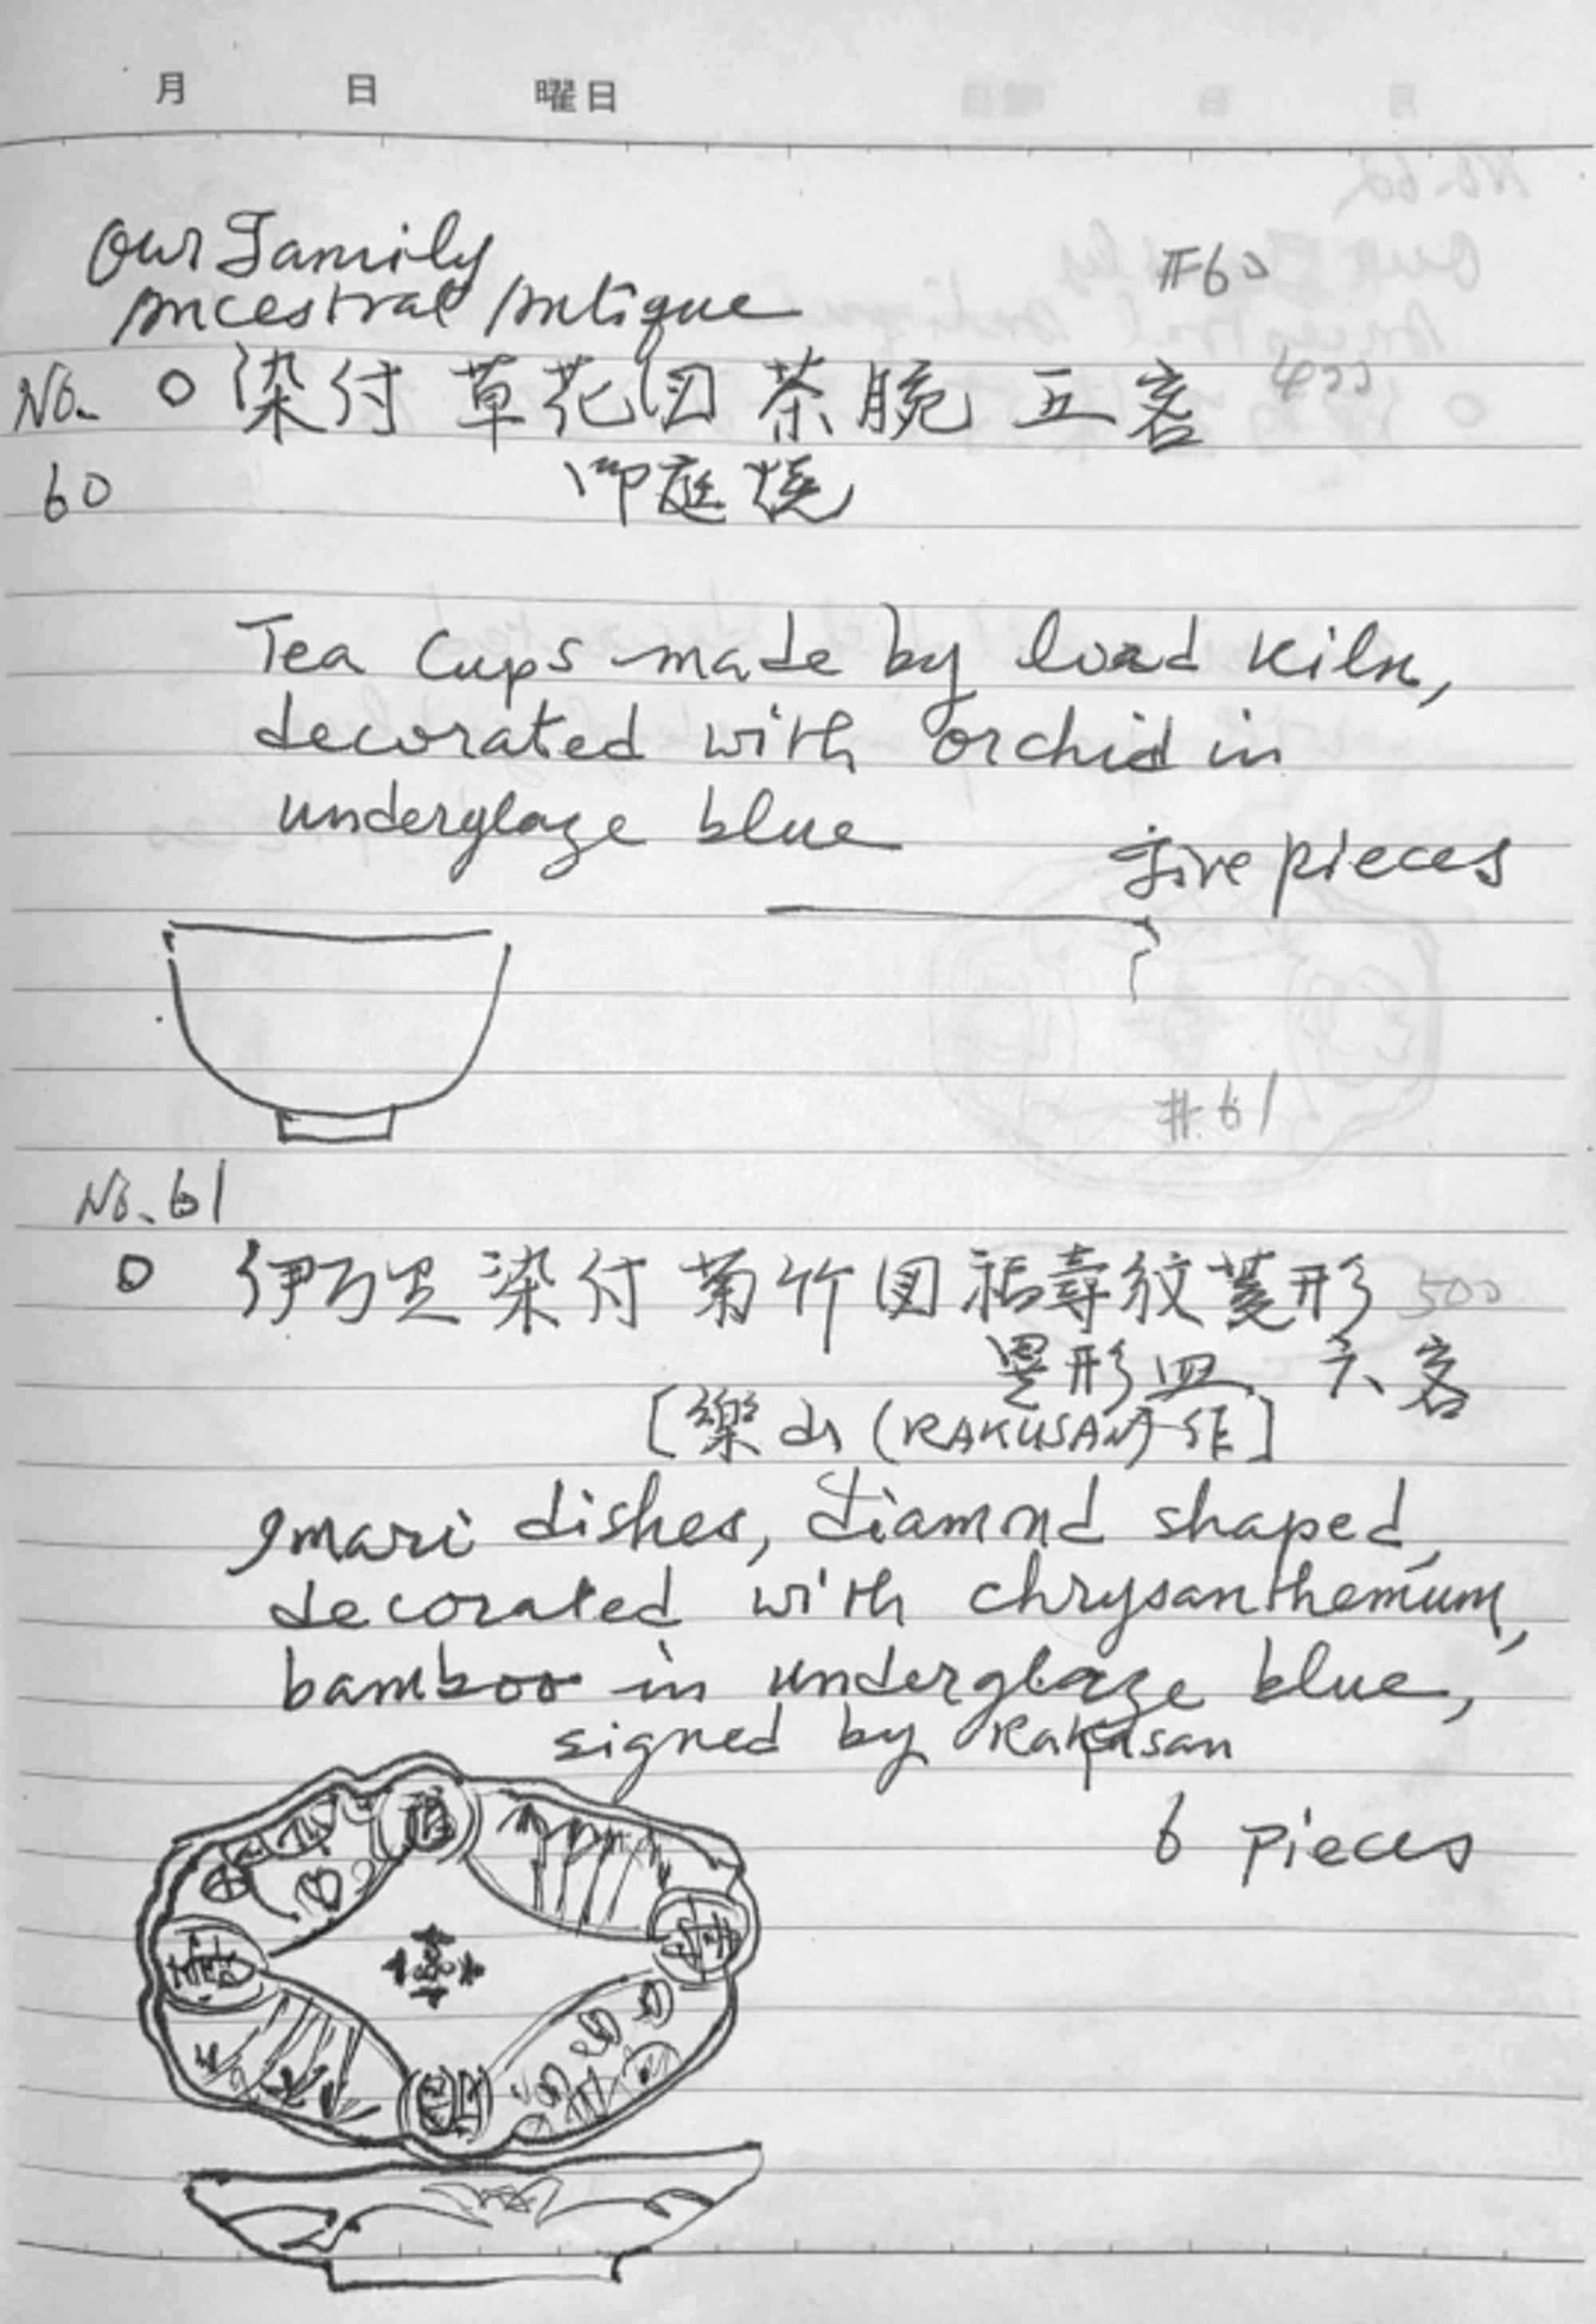 月 日 曜日
Our Family
Ancestral Antique #60
No. ○ 染付 草花図 茶腕 五客 400
60 御庭焼
Tea Cups made by load kiln,
decorated with orchid in
underglaze blue
five pieces
#.61
No. 61
○ 伊万里 染付 菊竹図 福壽紋菱形 500
異形皿 六客
[樂山 (RAKUSAN) 作]
Imari dishes, diamond shaped,
decorated with chrysanthemum,
bamboo in underglaze blue,
signed by Rakusan
6 pieces